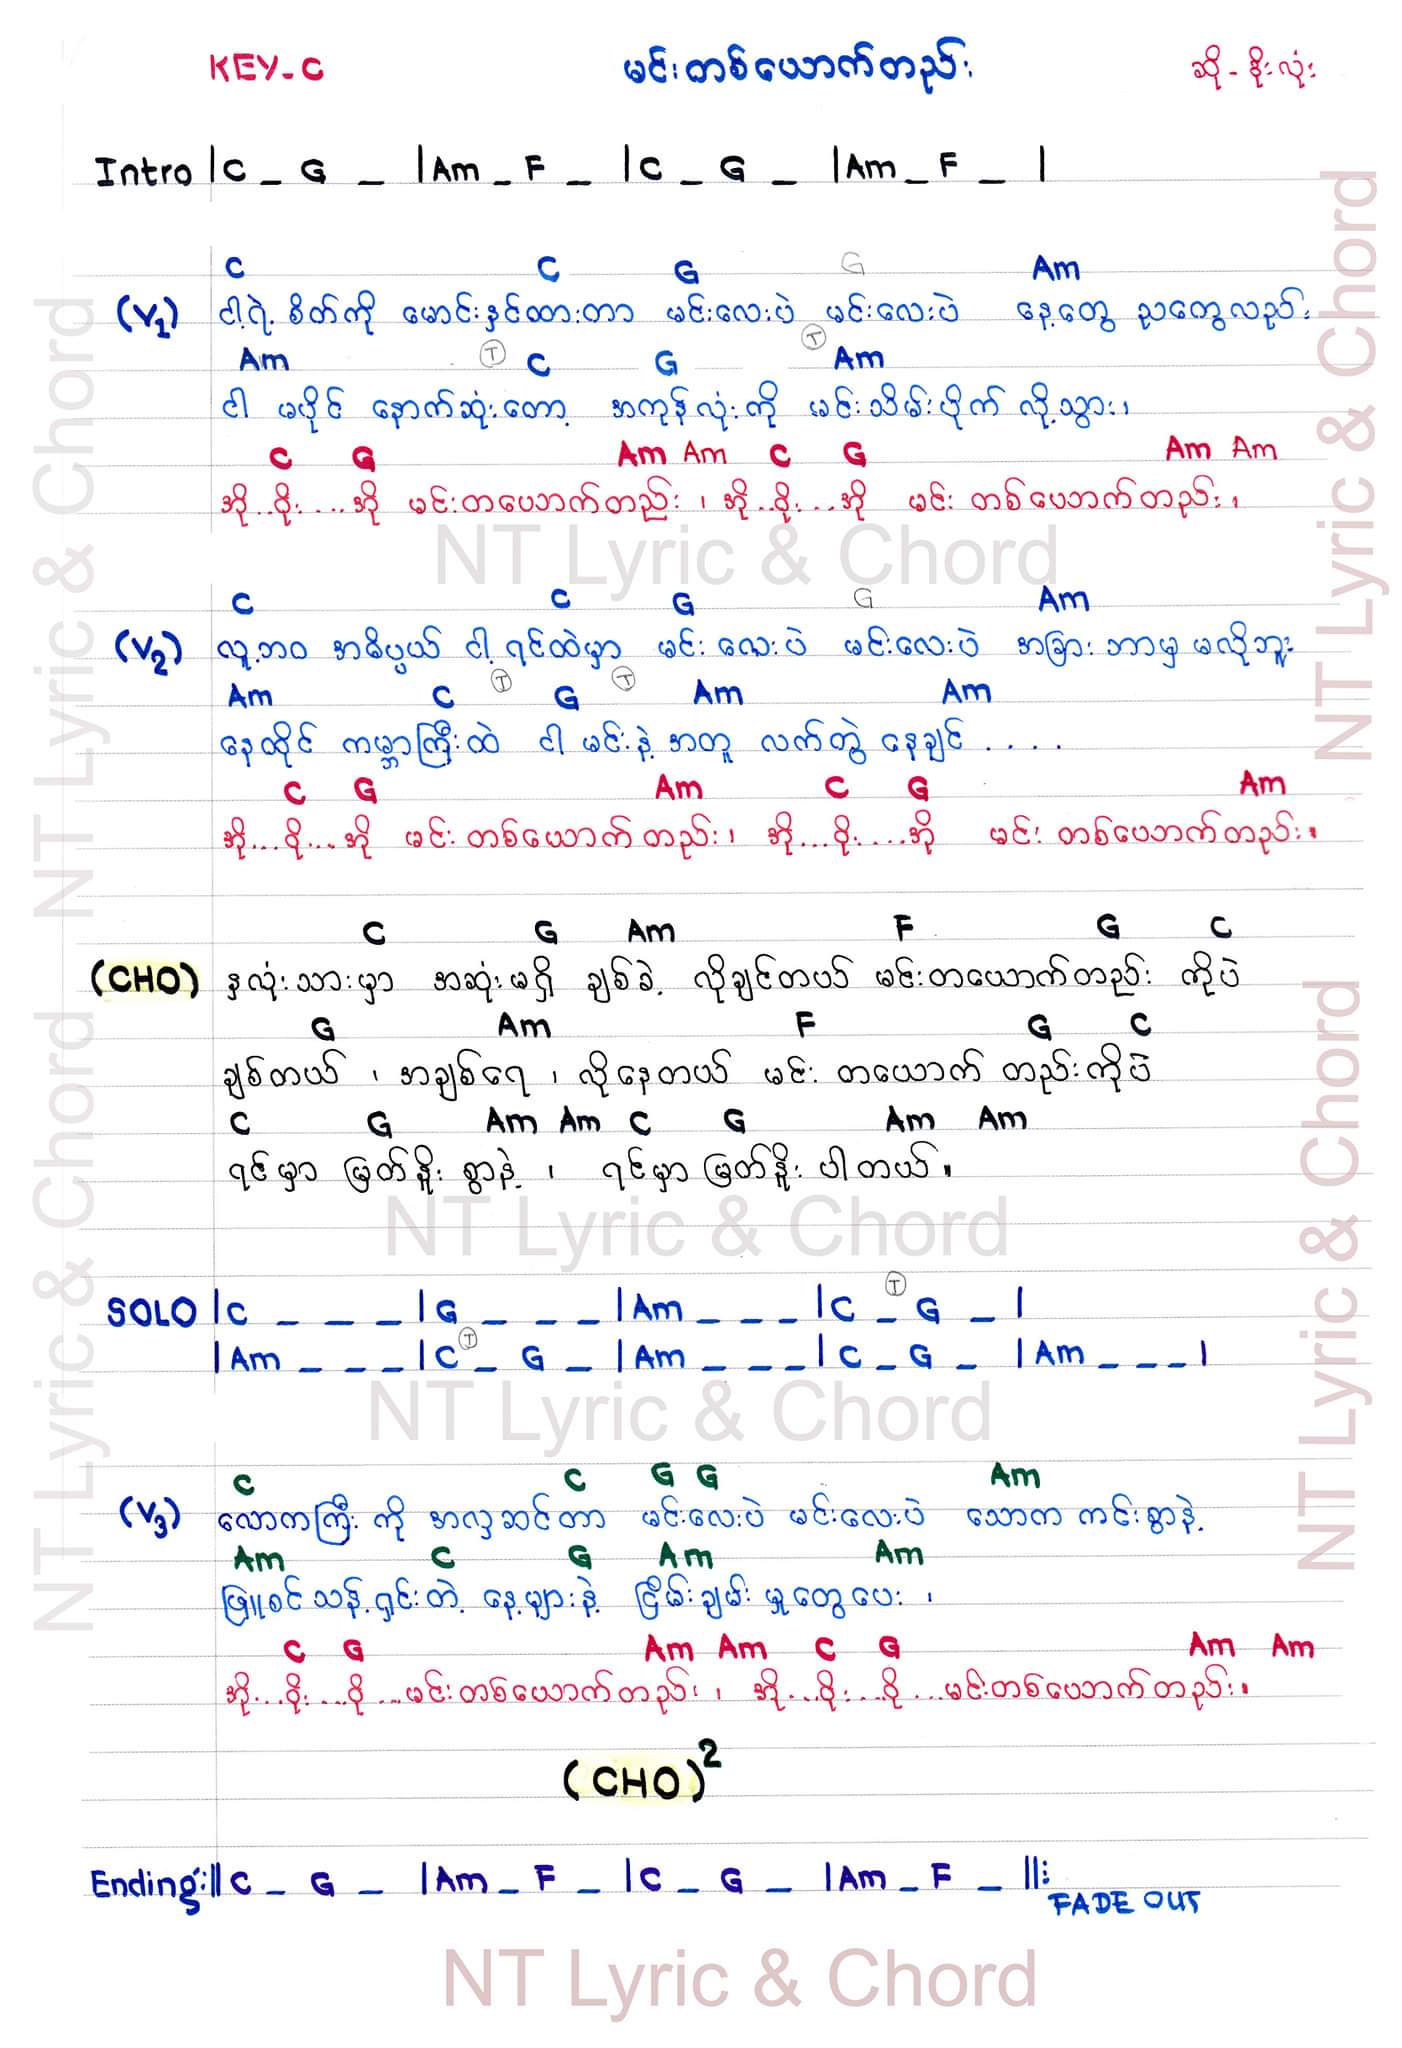 KEY-C မင်းတစ်ယောက်တည်း ဆို - စိုးလုံး
Intro |C _ G _ |Am _ F _ |C _ G _ |Am _ F _ |
C C G G Am
(V1) ငါ့ရဲ့ စိတ်ကို မောင်းနှင်ထားတာ မင်းလေးပဲ မင်းလေးပဲ နေ့တွေ ညတွေလည်း
Am T C G T Am
ငါ မပိုင် နောက်ဆုံးတော့ အကုန်လုံးကို မင်းသိမ်းပိုက် လို့သွား၊
C G Am Am C G Am Am
အို..ဝိုး....အို မင်းတယောက်တည်း ၊ အို..ဝိုး...အို မင်း တစ်ယောက်တည်း၊
NT Lyric & Chord
C C G G Am
(V2) လူ့ဘဝ အဓိပ္ပယ် ငါ့ ရင်ထဲမှာ မင်း လေးပဲ မင်းလေးပဲ အခြား ဘာမှ မလိုဘူး
Am C T G T Am Am
နေထိုင် ကမ္ဘာကြီးထဲ ငါ မင်းနဲ့ အတူ လက်တွဲ နေချင် ....
C G Am C G Am
အို...ဝို...အို မင်း တစ်ယောက်တည်း၊ အို...ဝိုး....အို မင်း တစ်ယောက်တည်း။
C G Am F G C
(CHO) နှလုံးသားမှာ အဆုံးမရှိ ချစ်ခဲ့ လိုချင်တယ် မင်းတယောက်တည်း ကိုပဲ
G Am F G C
ချစ်တယ် ၊ အချစ်ရေ ၊ လိုနေတယ် မင်း တယောက် တည်းကိုပဲ
C G Am Am C G Am Am
ရင်မှာ မြတ်နိုး စွာနဲ့ ၊ ရင်မှာ မြတ်နိုး ပါတယ်။
NT Lyric & Chord
SOLO |C _ _ _ |G _ _ _ |Am _ _ _ |C _ T G _ |
|Am _ _ _ |C T _ G _ |Am _ _ _ |C _ G _ |Am _ _ _ |
NT Lyric & Chord
C C G G Am
(V3) လောကကြီး ကို အလှဆင်တာ မင်းလေးပဲ မင်းလေးပဲ သောက ကင်းစွာနဲ့
Am C G Am Am
ဖြူစင်သန့်ရှင်းတဲ့ နေ့များနဲ့ ငြိမ်းချမ်း မှုတွေပေး ၊
C G Am Am C G Am Am
အို...ဝိုး...ဝို...မင်းတစ်ယောက်တည်း၊ အို...ဝိုး...ဝို...မင်းတစ်ယောက်တည်း။
(CHO)2
Ending:||C _ G _ |Am _ F _ |C _ G _ |Am _ F _ ||:
FADE OUT
NT Lyric & Chord
NT Lyric & Chord
NT Lyric & Chord
NT Lyric & Chord
NT Lyric & Chord